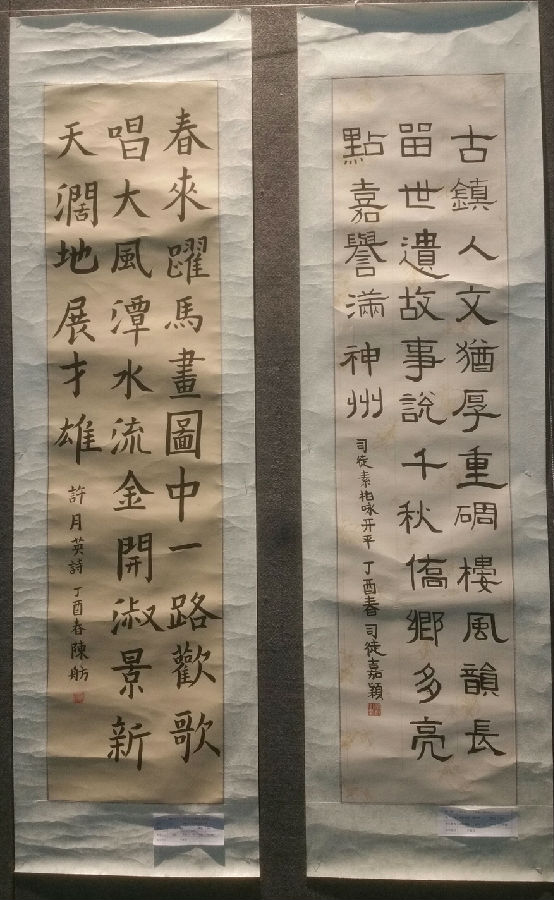 古鎮人文猶厚重碉樓風韻長
留世遺故事説千秋僑鄉多亮
點嘉譽滿神州
司徒素柏咏开平 丁酉春 司徒嘉穎
春來躍馬畫圖中一路歡歌
唱大風潭水流金開淑景新
天濶地展才雄
許月英詩丁酉春陳舫